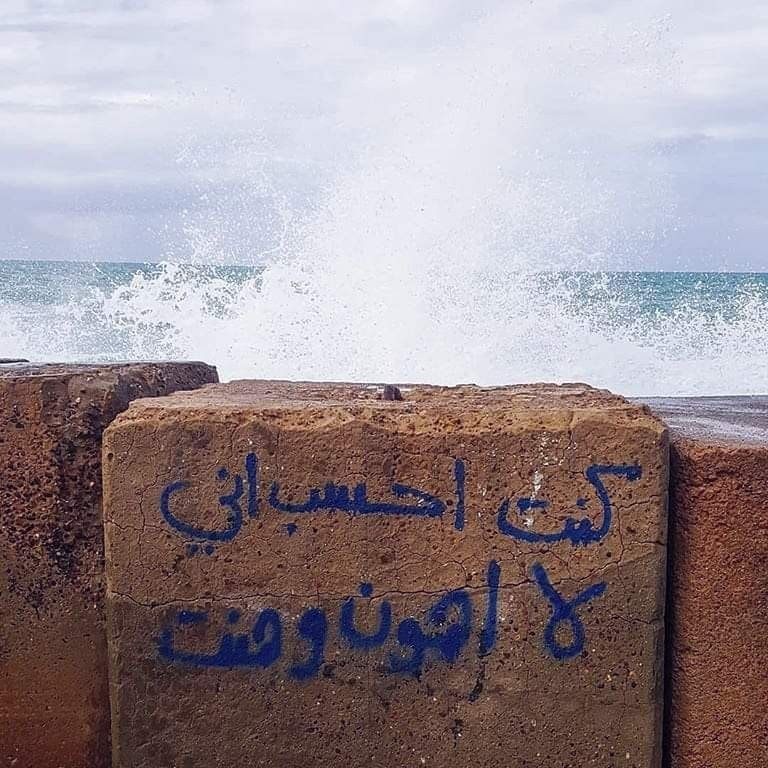 كنت احسب اني
لا اهون وهنت